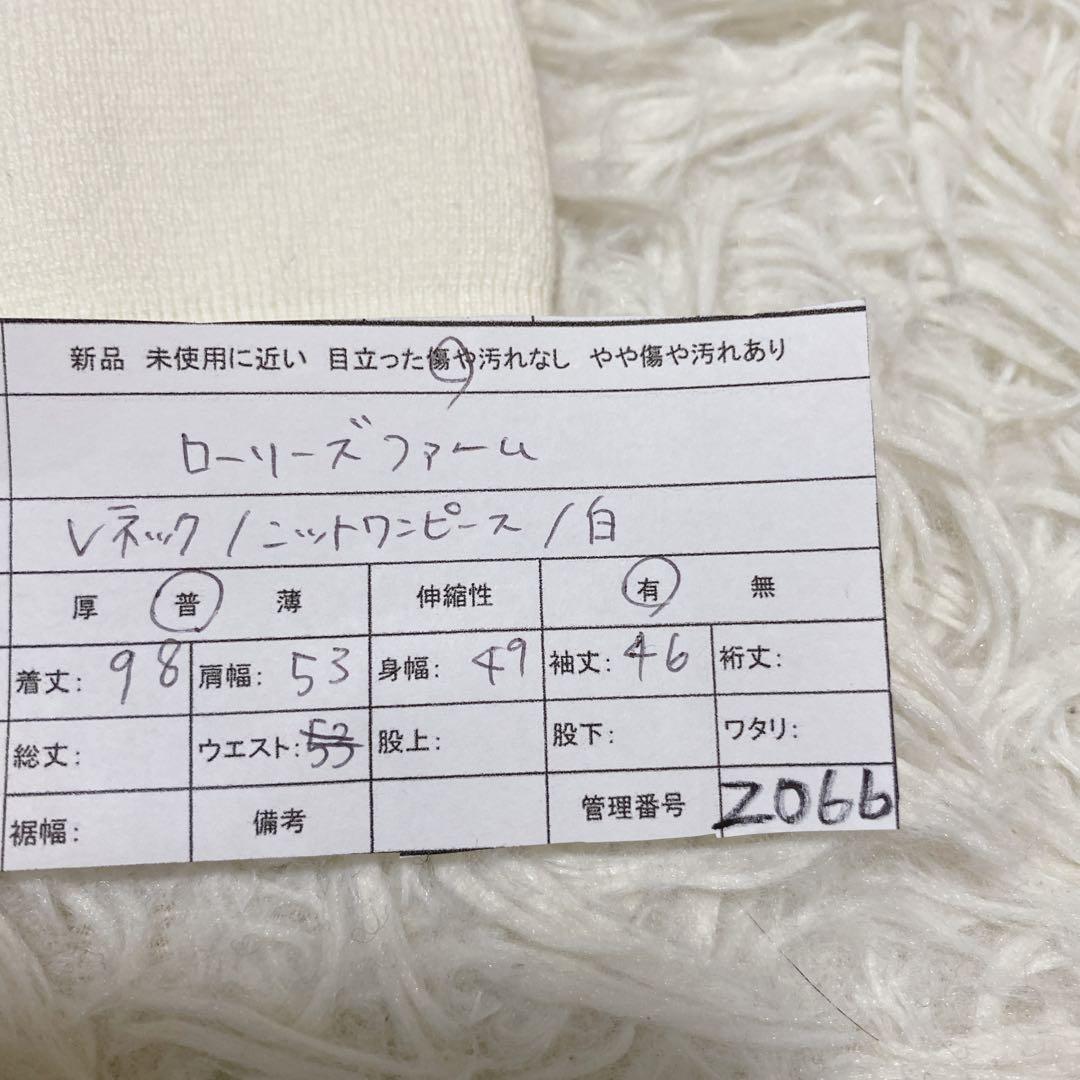 新品 未使用に近い 目立った傷や汚れなし やや傷や汚れあり
ローリーズファーム
Vネック/ニットワンピース/白
厚 普 薄 伸縮性 有 無
着丈: 98 肩幅: 53 身幅: 49 袖丈: 46 裄丈:
総丈: ウエスト: 股上: 股下: ワタリ:
裾幅: 備考 管理番号 2066